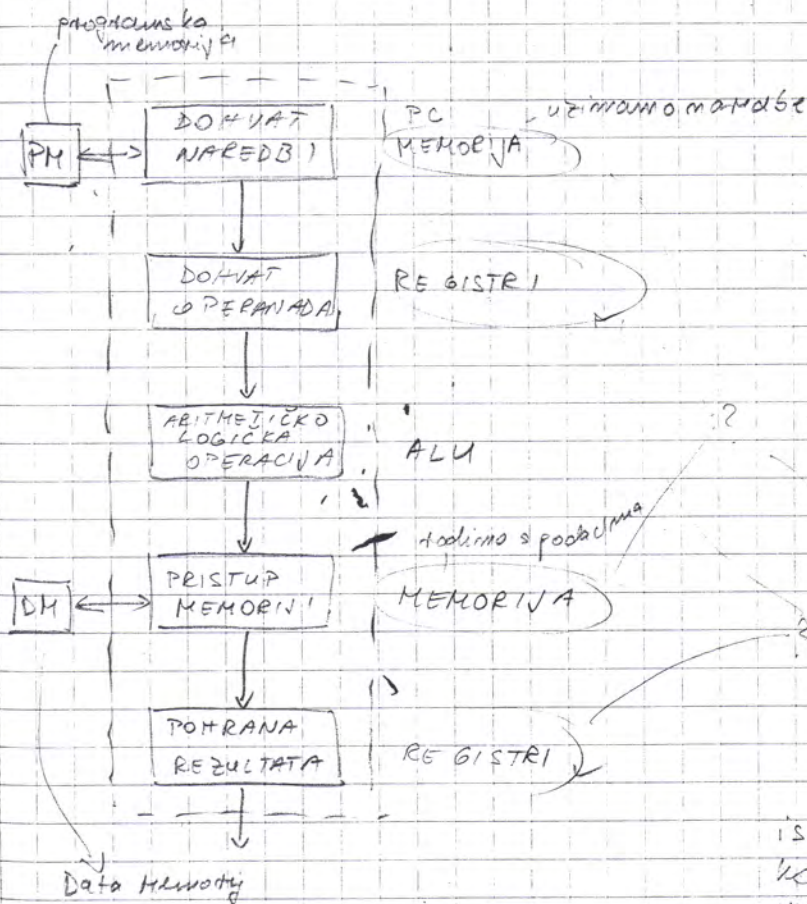 programska
memorija
PM
DOHVAT
NAREDBI
PC
uzimamo naredbe
MEMORIJA
DOHVAT
OPERANADA
REGISTRI
ARITMETIČKO
LOGIČKA
OPERACIJA
ALU
?
radimo s podacima
DM
PRISTUP
MEMORIJI
MEMORIJA
?
POHRANA
REZULTATA
REGISTRI
Data Memory
is